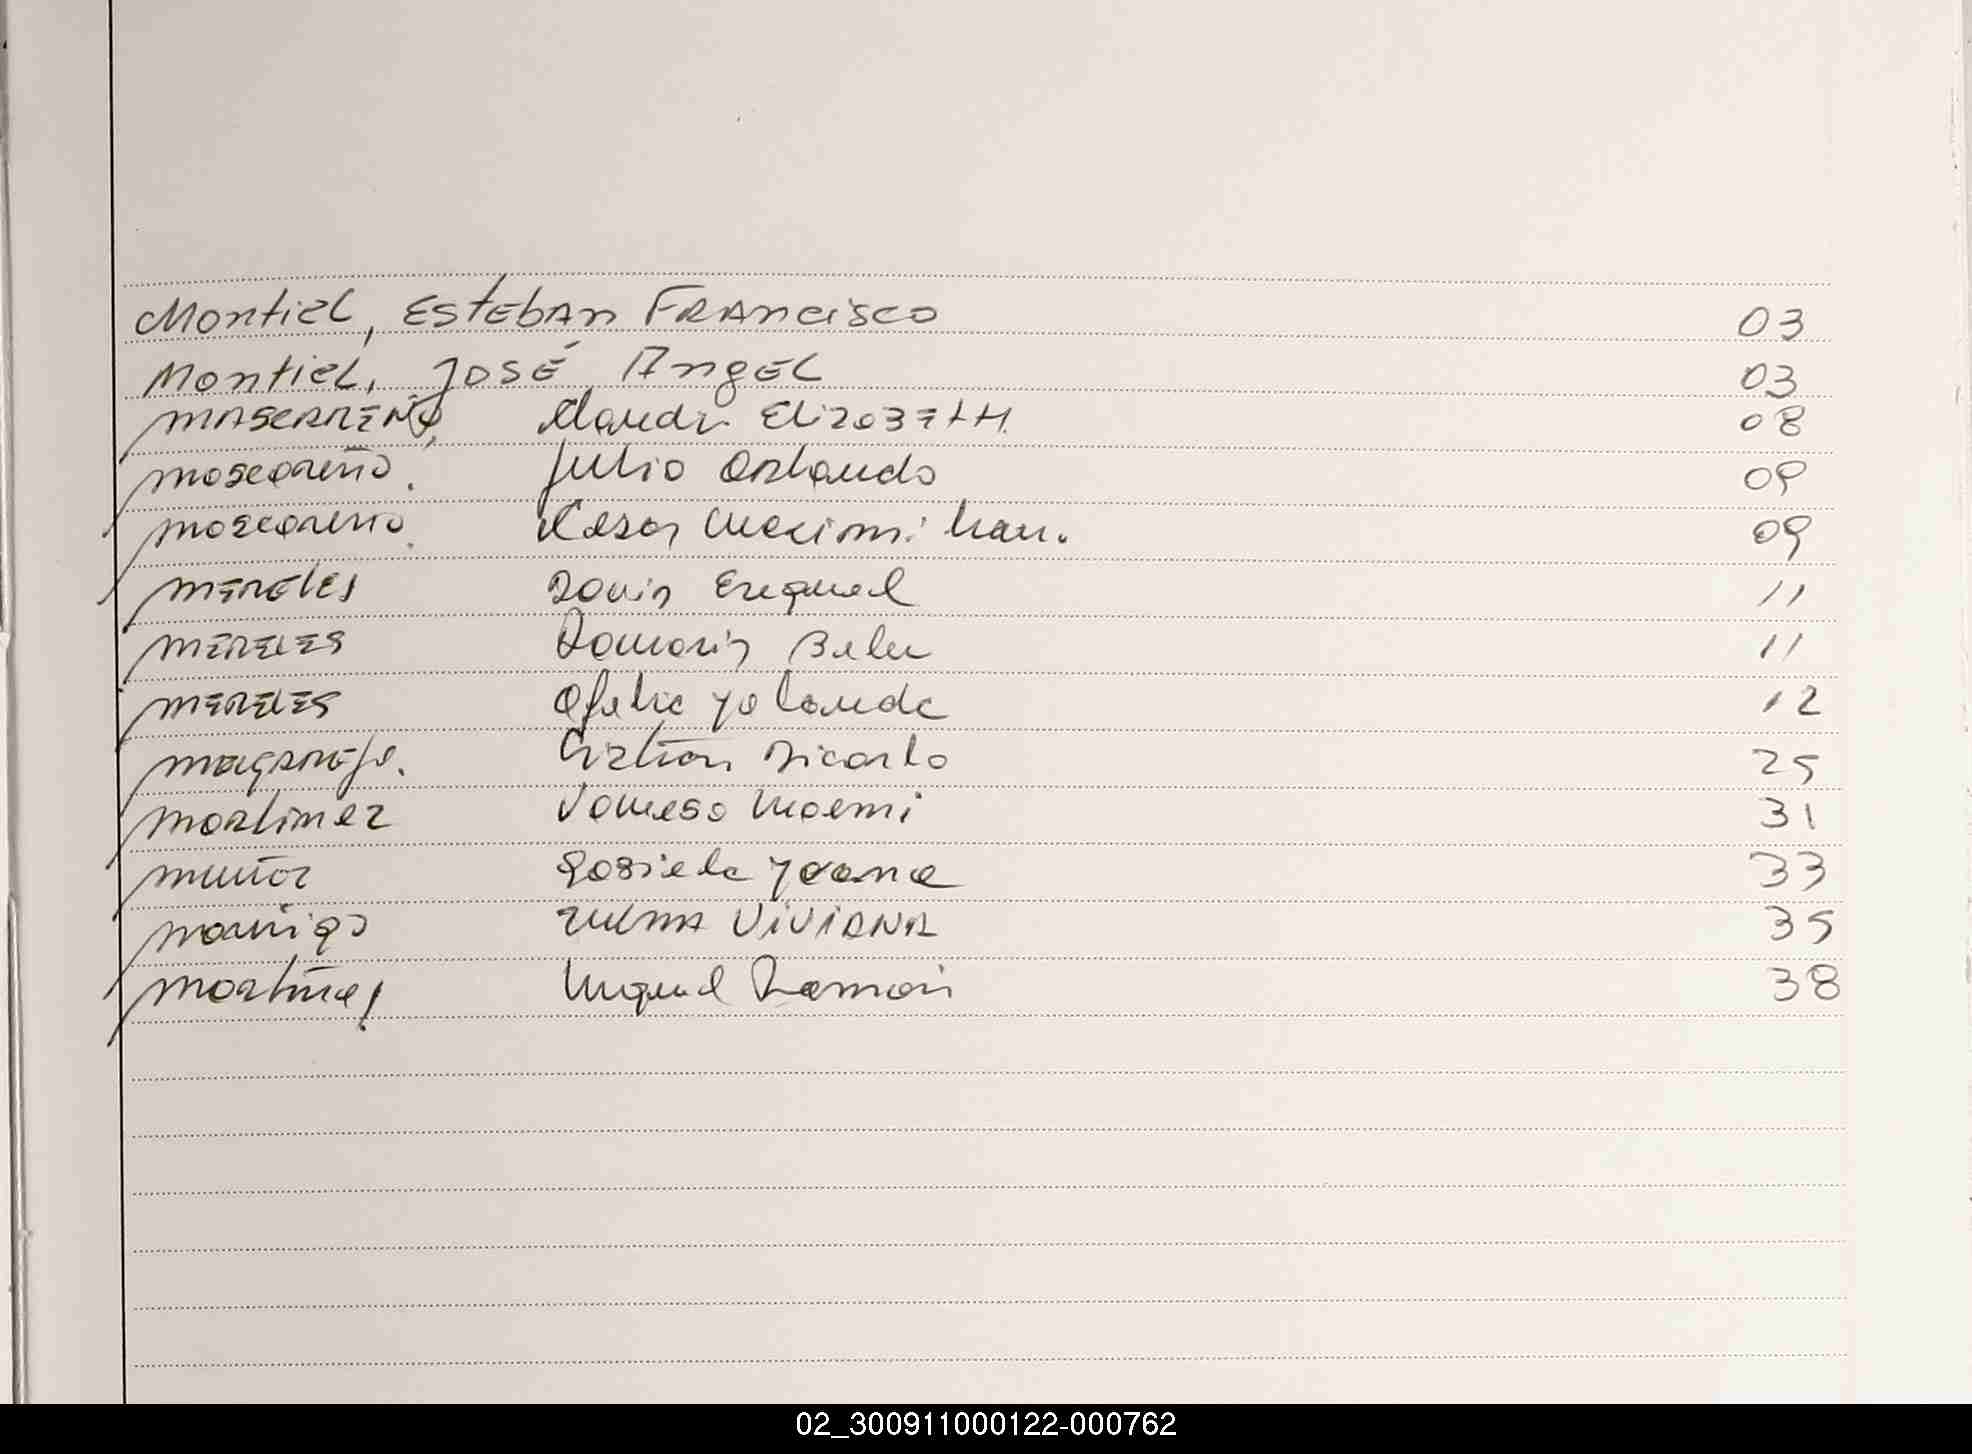 Montiel, Esteban Francisco 03
Montiel, José Angel 03
Mascareño, Elizabeth 08
Mascareño. Julio Orlando 09
Mascareño. Cesar Maximilian. 09
Mereles Ezequiel 11
Mereles Damaris Belen 11
Mereles Ofelia Yolanda 12
Cristian Ricardo 25
Martinez Vanesa Noemi 31
Muñoz Yoana 33
Zulma Viviana 35
Martinez Miguel Ramon 38
02_300911000122-000762